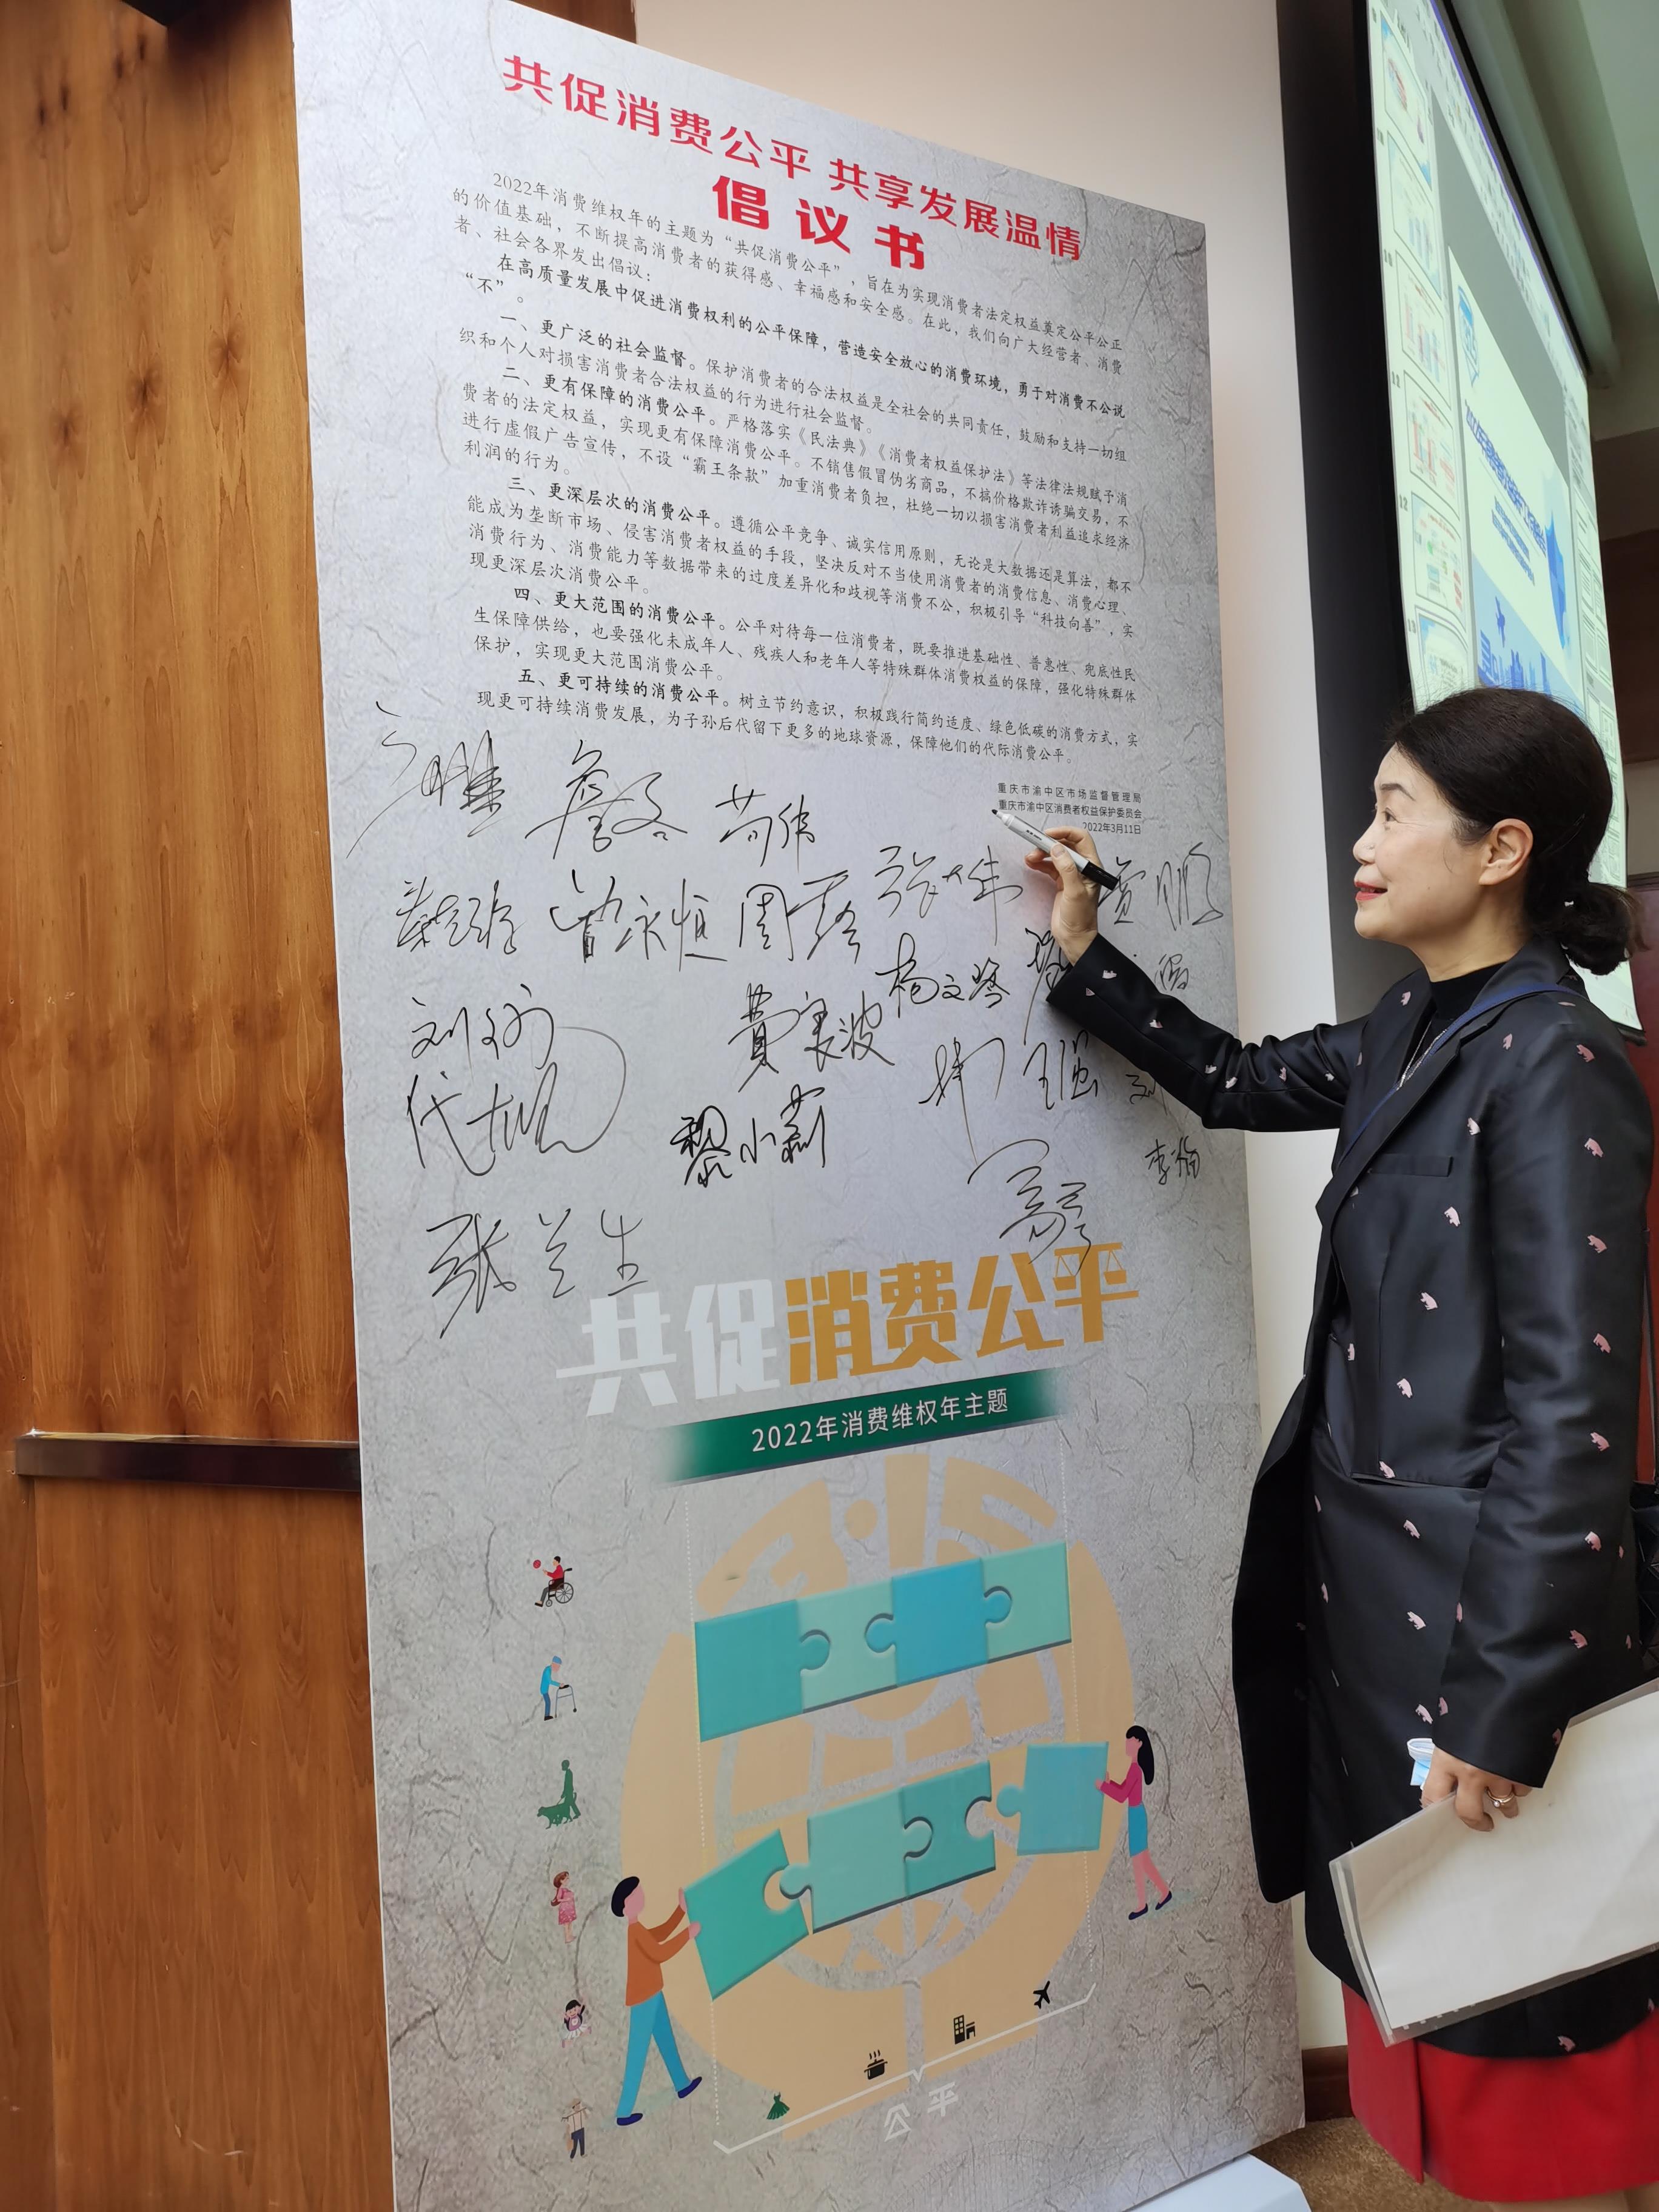 共促消费公平 共享发展温情
倡议书
2022年消费维权年的主题为“共促消费公平”，旨在为实现消费者法定权益奠定公平公正
的价值基础，不断提高消费者的获得感、幸福感和安全感。在此，我们向广大经营者、消费
者、社会各界发出倡议：
在高质量发展中促进消费权利的公平保障，营造安全放心的消费环境，勇于对消费不公说
“不”。
一、更广泛的社会监督。保护消费者的合法权益是全社会的共同责任，鼓励和支持一切组
织和个人对损害消费者合法权益的行为进行社会监督。
二、更有保障的消费公平。严格落实《民法典》《消费者权益保护法》等法律法规赋予消
费者的法定权益，实现更有保障消费公平。不销售假冒伪劣商品，不搞价格欺诈诱骗交易，不
进行虚假广告宣传，不设“霸王条款”加重消费者负担，杜绝一切以损害消费者利益追求经济
利润的行为。
三、更深层次的消费公平。遵循公平竞争、诚实信用原则，无论是大数据还是算法，都不
能成为垄断市场、侵害消费者权益的手段，坚决反对不当使用消费者的消费信息、消费心理、
消费行为、消费能力等数据带来的过度差异化和歧视等消费不公，积极引导“科技向善”，实
现更深层次消费公平。
四、更大范围的消费公平。公平对待每一位消费者，既要推进基础性、普惠性、兜底性民
生保障供给，也要强化未成年人、残疾人和老年人等特殊群体消费权益的保障，强化特殊群体
保护，实现更大范围消费公平。
五、更可持续的消费公平。树立节约意识，积极践行简约适度、绿色低碳的消费方式，实
现更可持续消费发展，为子孙后代留下更多的地球资源，保障他们的代际消费公平。
重庆市渝中区市场监督管理局
重庆市渝中区消费者权益保护委员会
2022年3月11日
曾永恒
张大伟
杨文琴
黎小莉
张兰生
共促消费公平
2022年消费维权年主题
公平